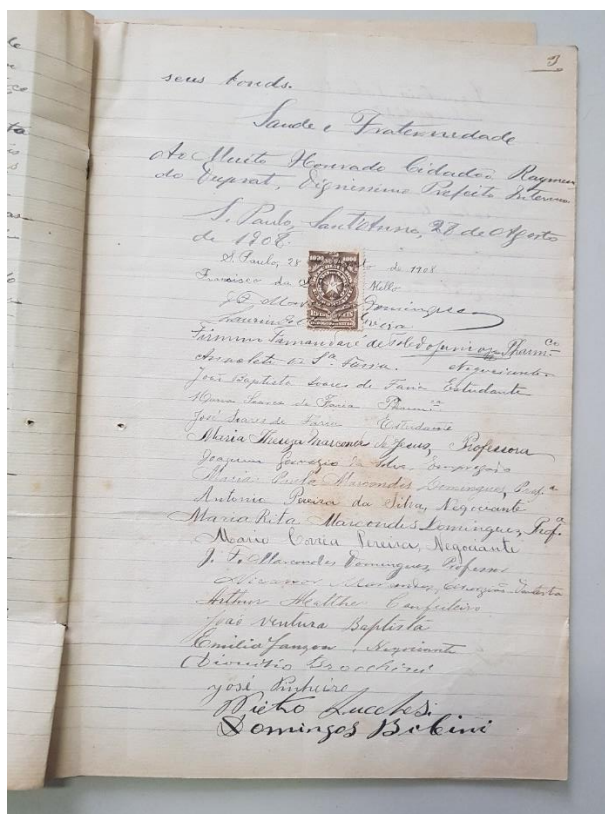 3
seus bonds.
Saude e Fraternidade
Ao Muito Honrado Cidadão Raymun
do Duprat, Dignissimo Prefeito Interino
S. Paulo, Sant'Anna, 28 de Agosto
de 1908.
S. Paulo, 28 de 1908
Francisco da Mello
Domingues
Firmino Tamandaré de Toledo Junior Pharmco
Anacleto de Sza Faria. Negociante
João Baptista Soares de Faria Estudante
Maria Soares de Faria Pharmca
José Soares de Faria Estudante
Maria Thereza Marcondes de Jesus, Professora
Joaquim Gervasio da Silva, Empregado
Maria Paula Marcondes Domingues, Profa
Antonio Pereira da Silva, Negociante
Maria Rita Marcondes Domingues, Profa
Mario Corrêa Pereira, Negociante
J. F. Marcondes Domingues, Professor
Marcondes, Cirurgião Dentista
Arthur Confeiteiro
José Ventura Baptista
Emilio Negociante
Dionisio Brochini
José Pinheiro
Pietro Lucchesi
Domingos